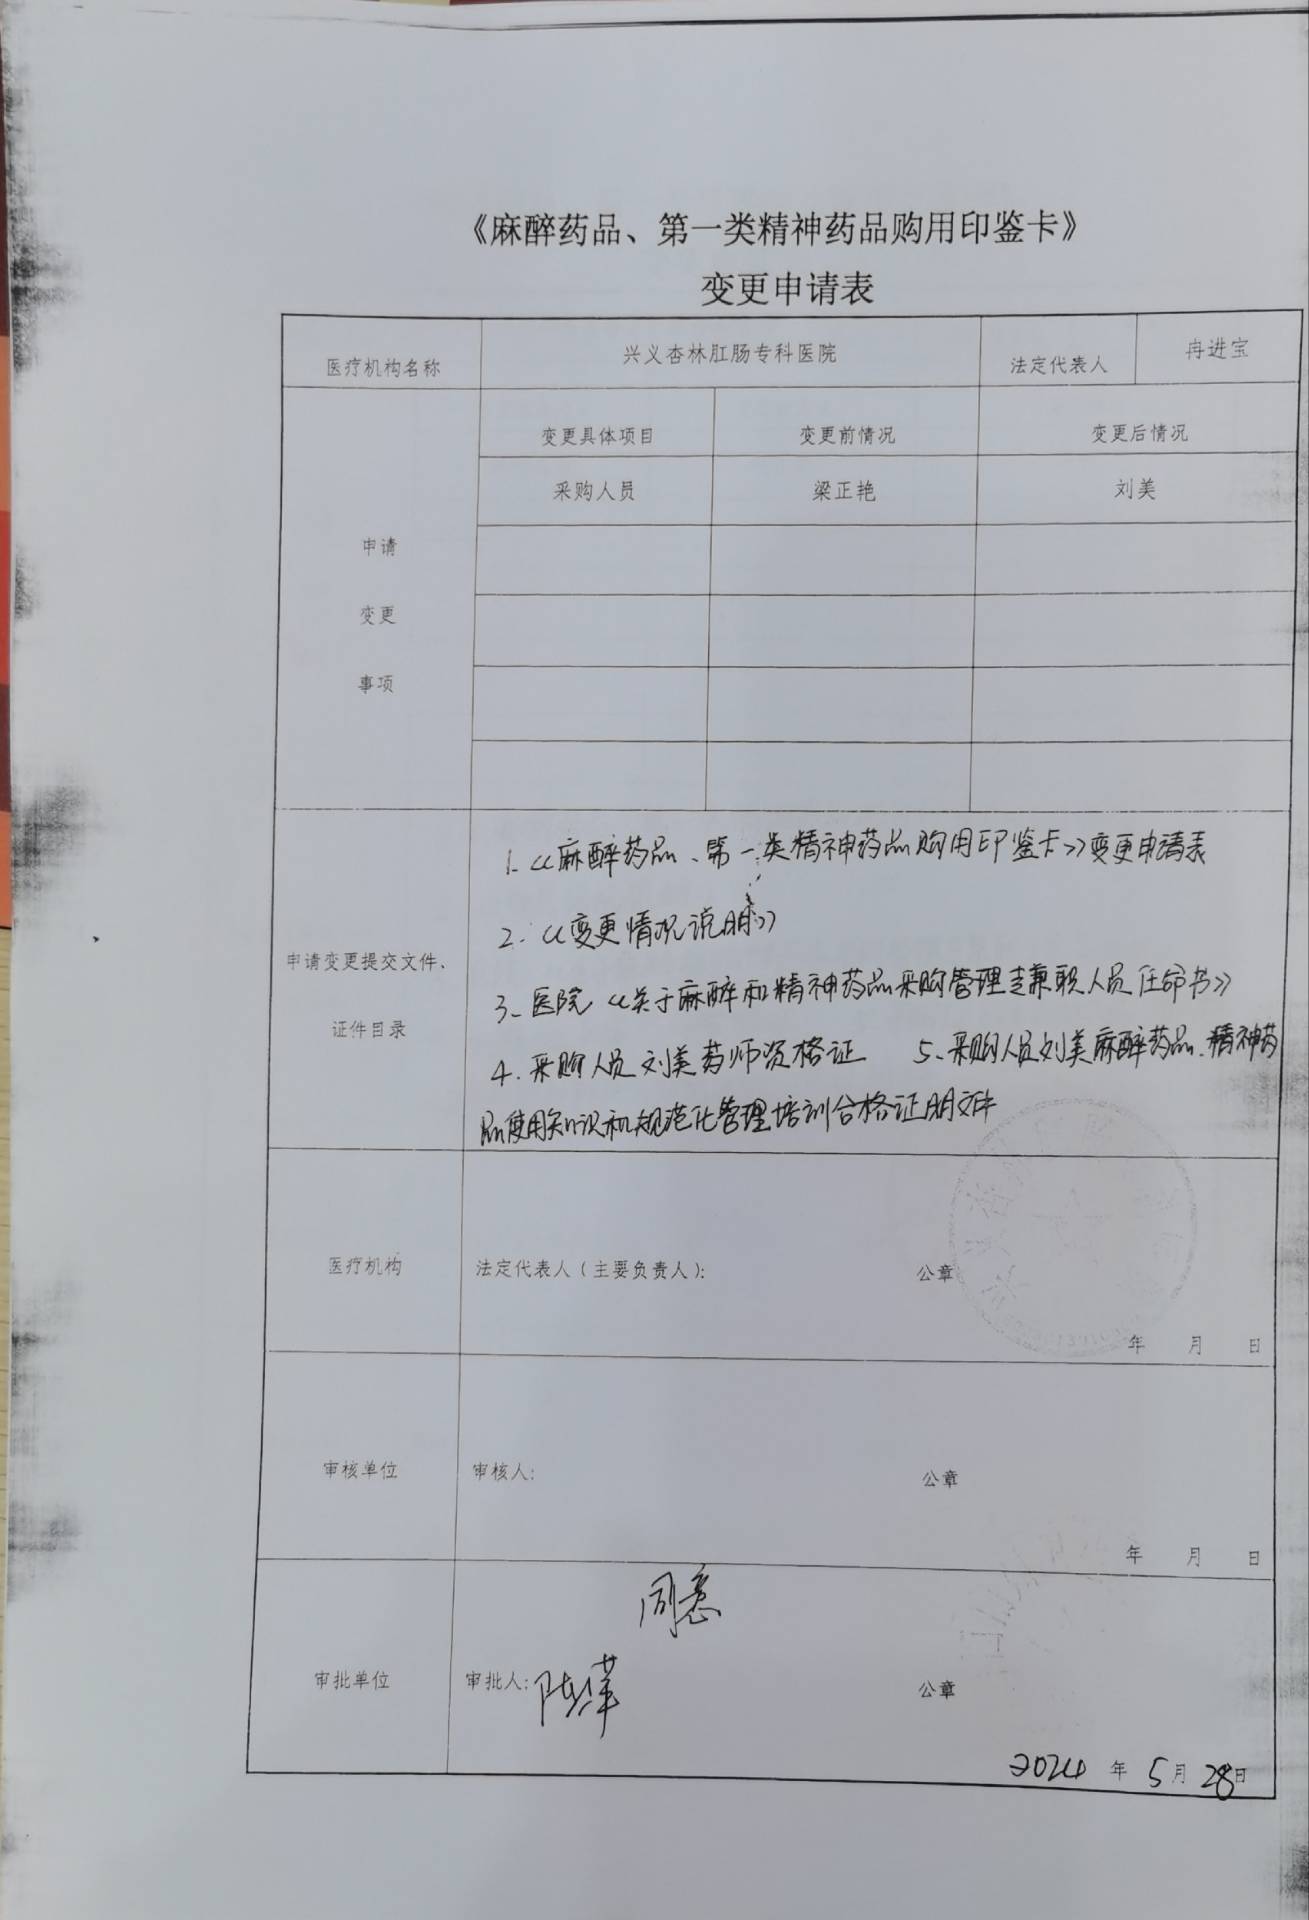 《麻醉药品、第一类精神药品购用印鉴卡》
变更申请表
医疗机构名称 兴义杏林肛肠专科医院 法定代表人 冉进宝
变更具体项目 变更前情况 变更后情况
采购人员 梁正艳 刘美
申请
变更
事项
1.《麻醉药品、第一类精神药品购用印鉴卡》变更申请表
2.《变更情况说明》
申请变更提交文件、
证件目录
3、医院《关于麻醉和精神药品采购管理专兼职人员任命书》
4.采购人员刘美药师资格证 5、采购人员刘美麻醉药品、精神药
品使用知识和规范化管理培训合格证明文件
医疗机构 法定代表人(主要负责人): 公章
年 月 日
审核单位 审核人: 公章
年 月 日
同意
审批单位 审批人: 公章
2024 年 5 月 28 日